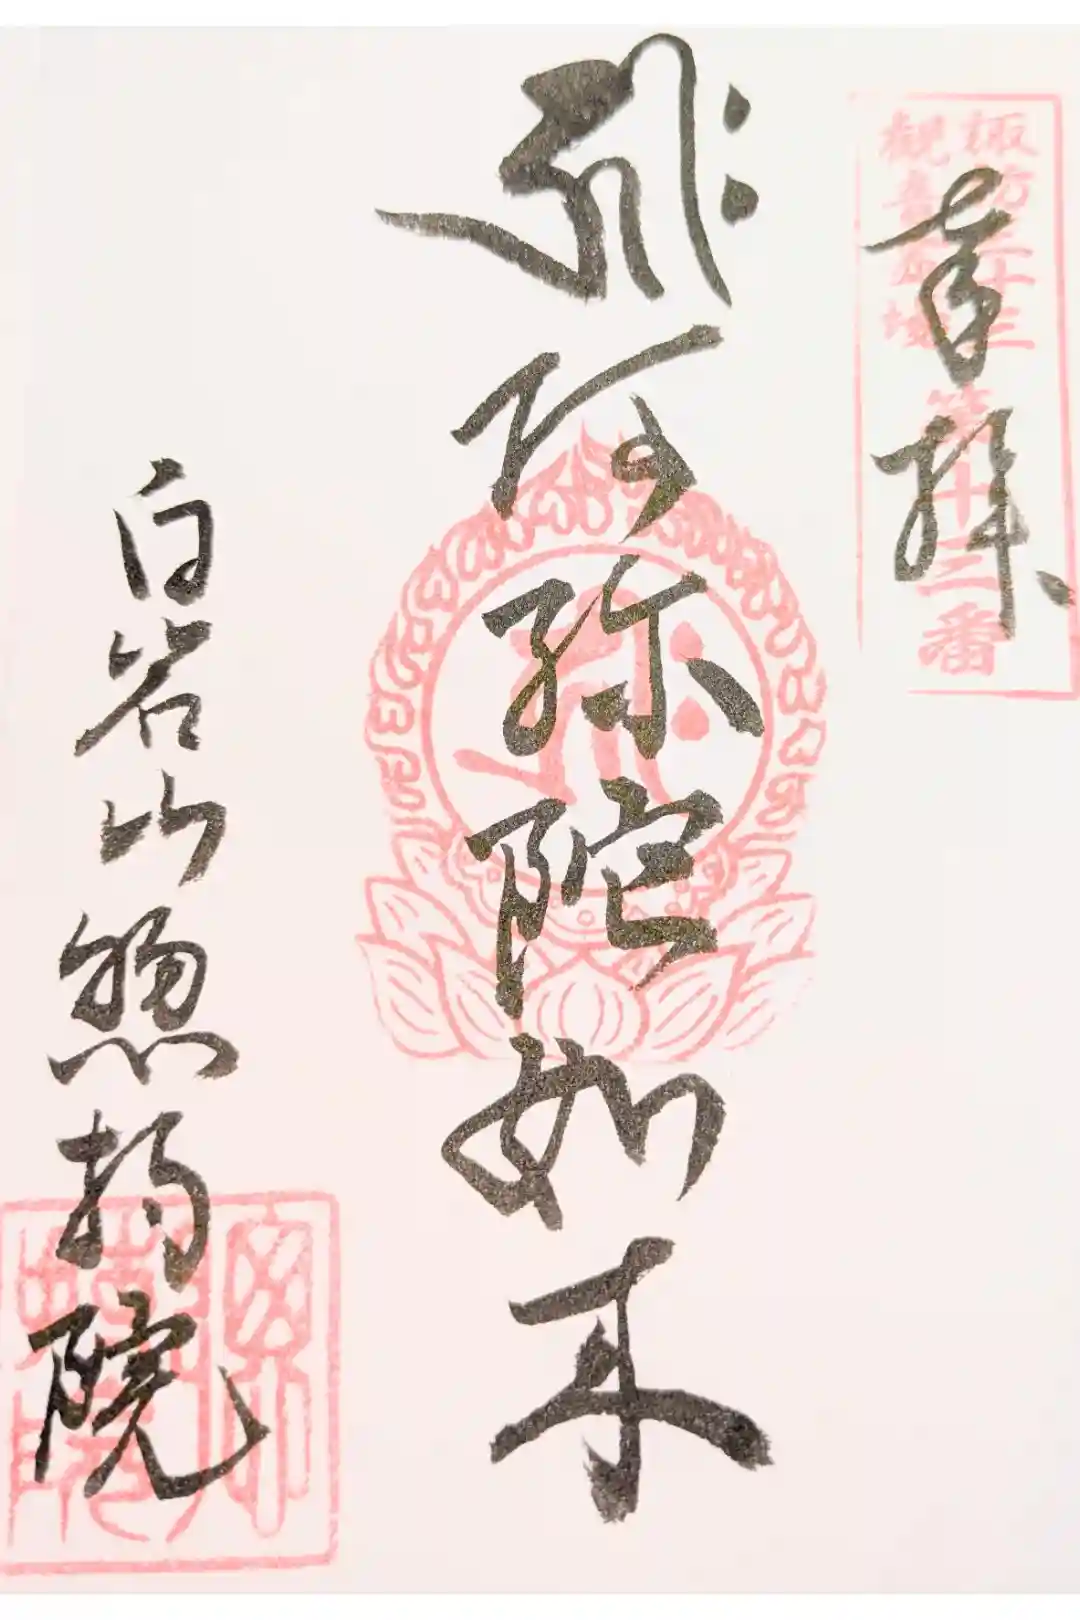 諏訪三十三
観音霊場
第十三番
奉拝
ह्रीः
阿弥陀如来
白岩山惣持院